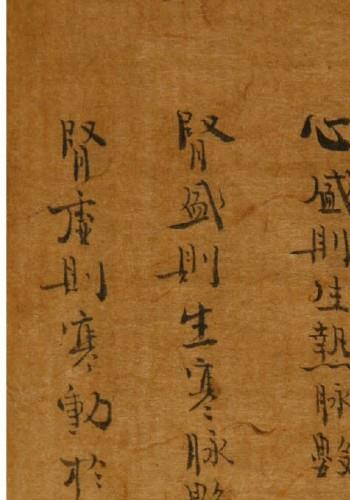 心盛則生熱脉數
腎盛則生寒脉
腎虛則寒動於